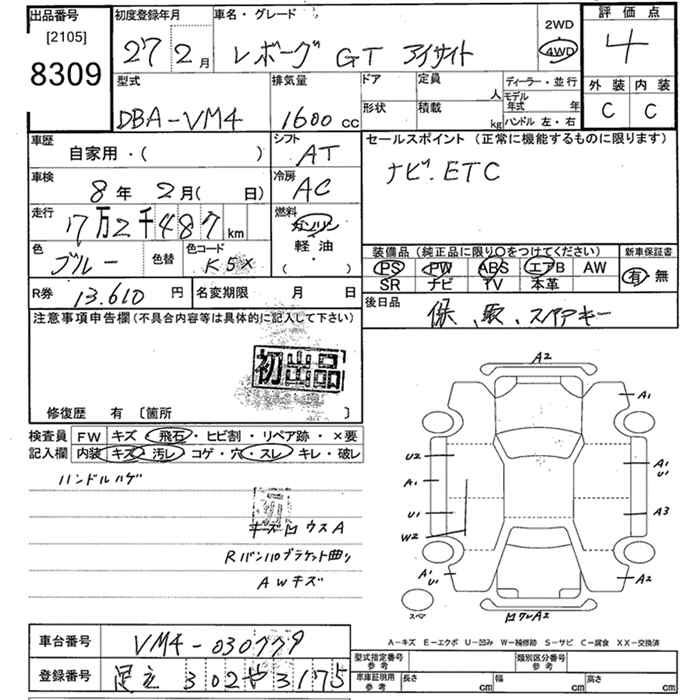 出品番号
[2105]
8309
初度登録年月
27年2月
車名・グレード
レボーグ GT アイサイト
2WD
4WD
評価点
4
外装 内装
C C
型式
DBA-VM4
排気量
1600cc
ドア
形状
定員 人
積載 kg
ディーラー・並行
モデル年式 年
ハンドル 左・右
車歴
自家用・( )
シフト
AT
セールスポイント (正常に機能するものに限ります)
ナビ.ETC
車検
8年 2月( 日)
冷房
AC
走行
17万2千487km
燃料
ガソリン
軽油
( ・ )
色
ブルー
色替
色コード
K5X
装備品 (純正品に限り○をつけてください)
PS PW ABS エアB AW
SR ナビ TV 本革
新車保証書
有・無
R券 13.610円
名変期限 月 日
後日品
保、取、スペアキー
注意事項申告欄 (不具合内容等は具体的に記入して下さい)
初出品
修復歴 有 〔箇所 〕
検査員記入欄
FW キズ・飛石・ヒビ割・リペア跡・×要
内装 キズ・汚レ・コゲ・穴・スレ・キレ・破レ
ハンドルハゲ
初
キズロウスA
Rバンパーブラケット曲り
AWキズ
A2
A1
U2
A1
U1
W2
A1
U1
A3
A1
U1
A2
スペア
ロワレA2
A-キズ E-エクボ U-凹み W-補修跡 S-サビ C-腐食 XX-交換済
車台番号
VM4-030779
登録番号
足立 302 や 3175
型式指定番号 参考
類別区分番号 参考
車庫証明用 参考
長さ cm
幅 cm
高さ cm